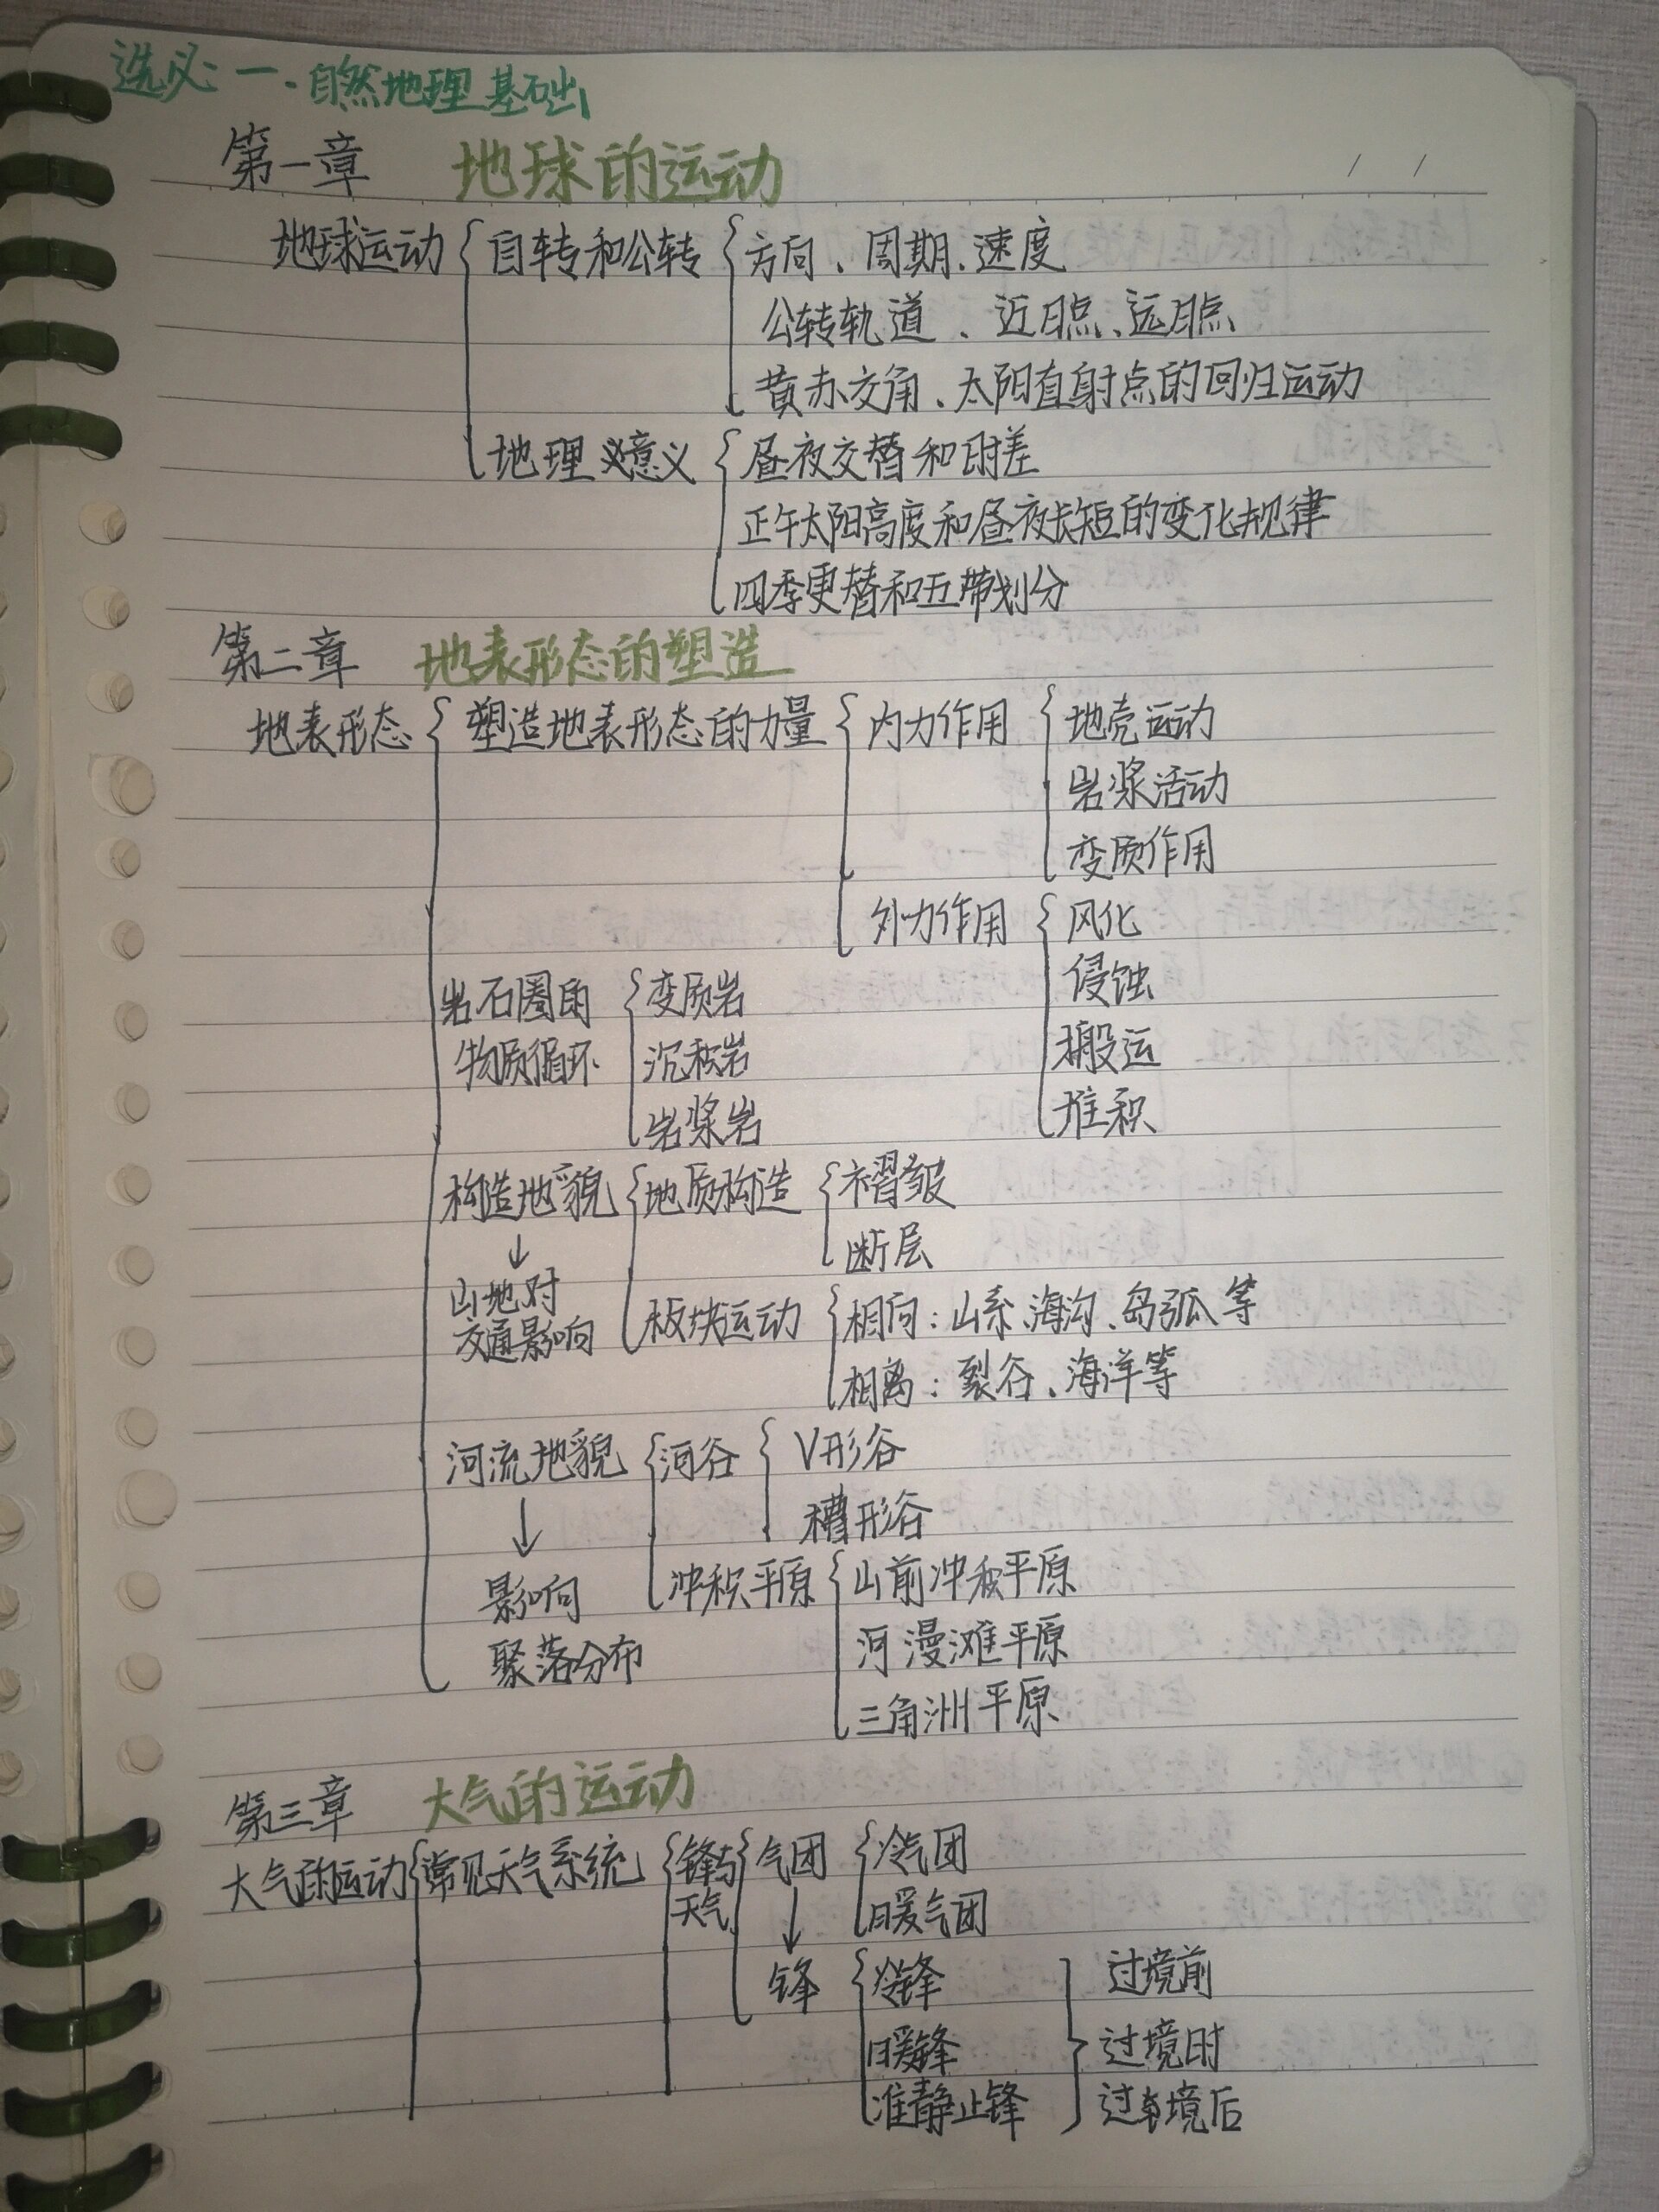 选必一·自然地理基础
第一章 地球的运动
地球运动 自转和公转 方向、周期、速度
公转轨道、近日点、远日点
黄赤交角、太阳直射点的回归运动
地理意义 昼夜交替和时差
正午太阳高度和昼夜长短的变化规律
四季更替和五带划分
第二章 地表形态的塑造
地表形态 塑造地表形态的力量 内力作用 地壳运动
岩浆活动
变质作用
外力作用 风化
侵蚀
搬运
堆积
岩石圈的 变质岩
物质循环 沉积岩
岩浆岩
构造地貌 地质构造 褶皱
断层
↓
山地对
交通影响 板块运动 相向：山系、海沟、岛弧等
相离：裂谷、海洋等
河流地貌 河谷 V形谷
槽形谷
↓
影响 冲积平原 山前冲积平原
聚落分布 河漫滩平原
三角洲平原
第三章 大气的运动
大气的运动 常见天气系统 锋与 气团 冷气团
天气 ↓ 暖气团
锋 冷锋 过境前
暖锋 过境时
准静止锋 过境后